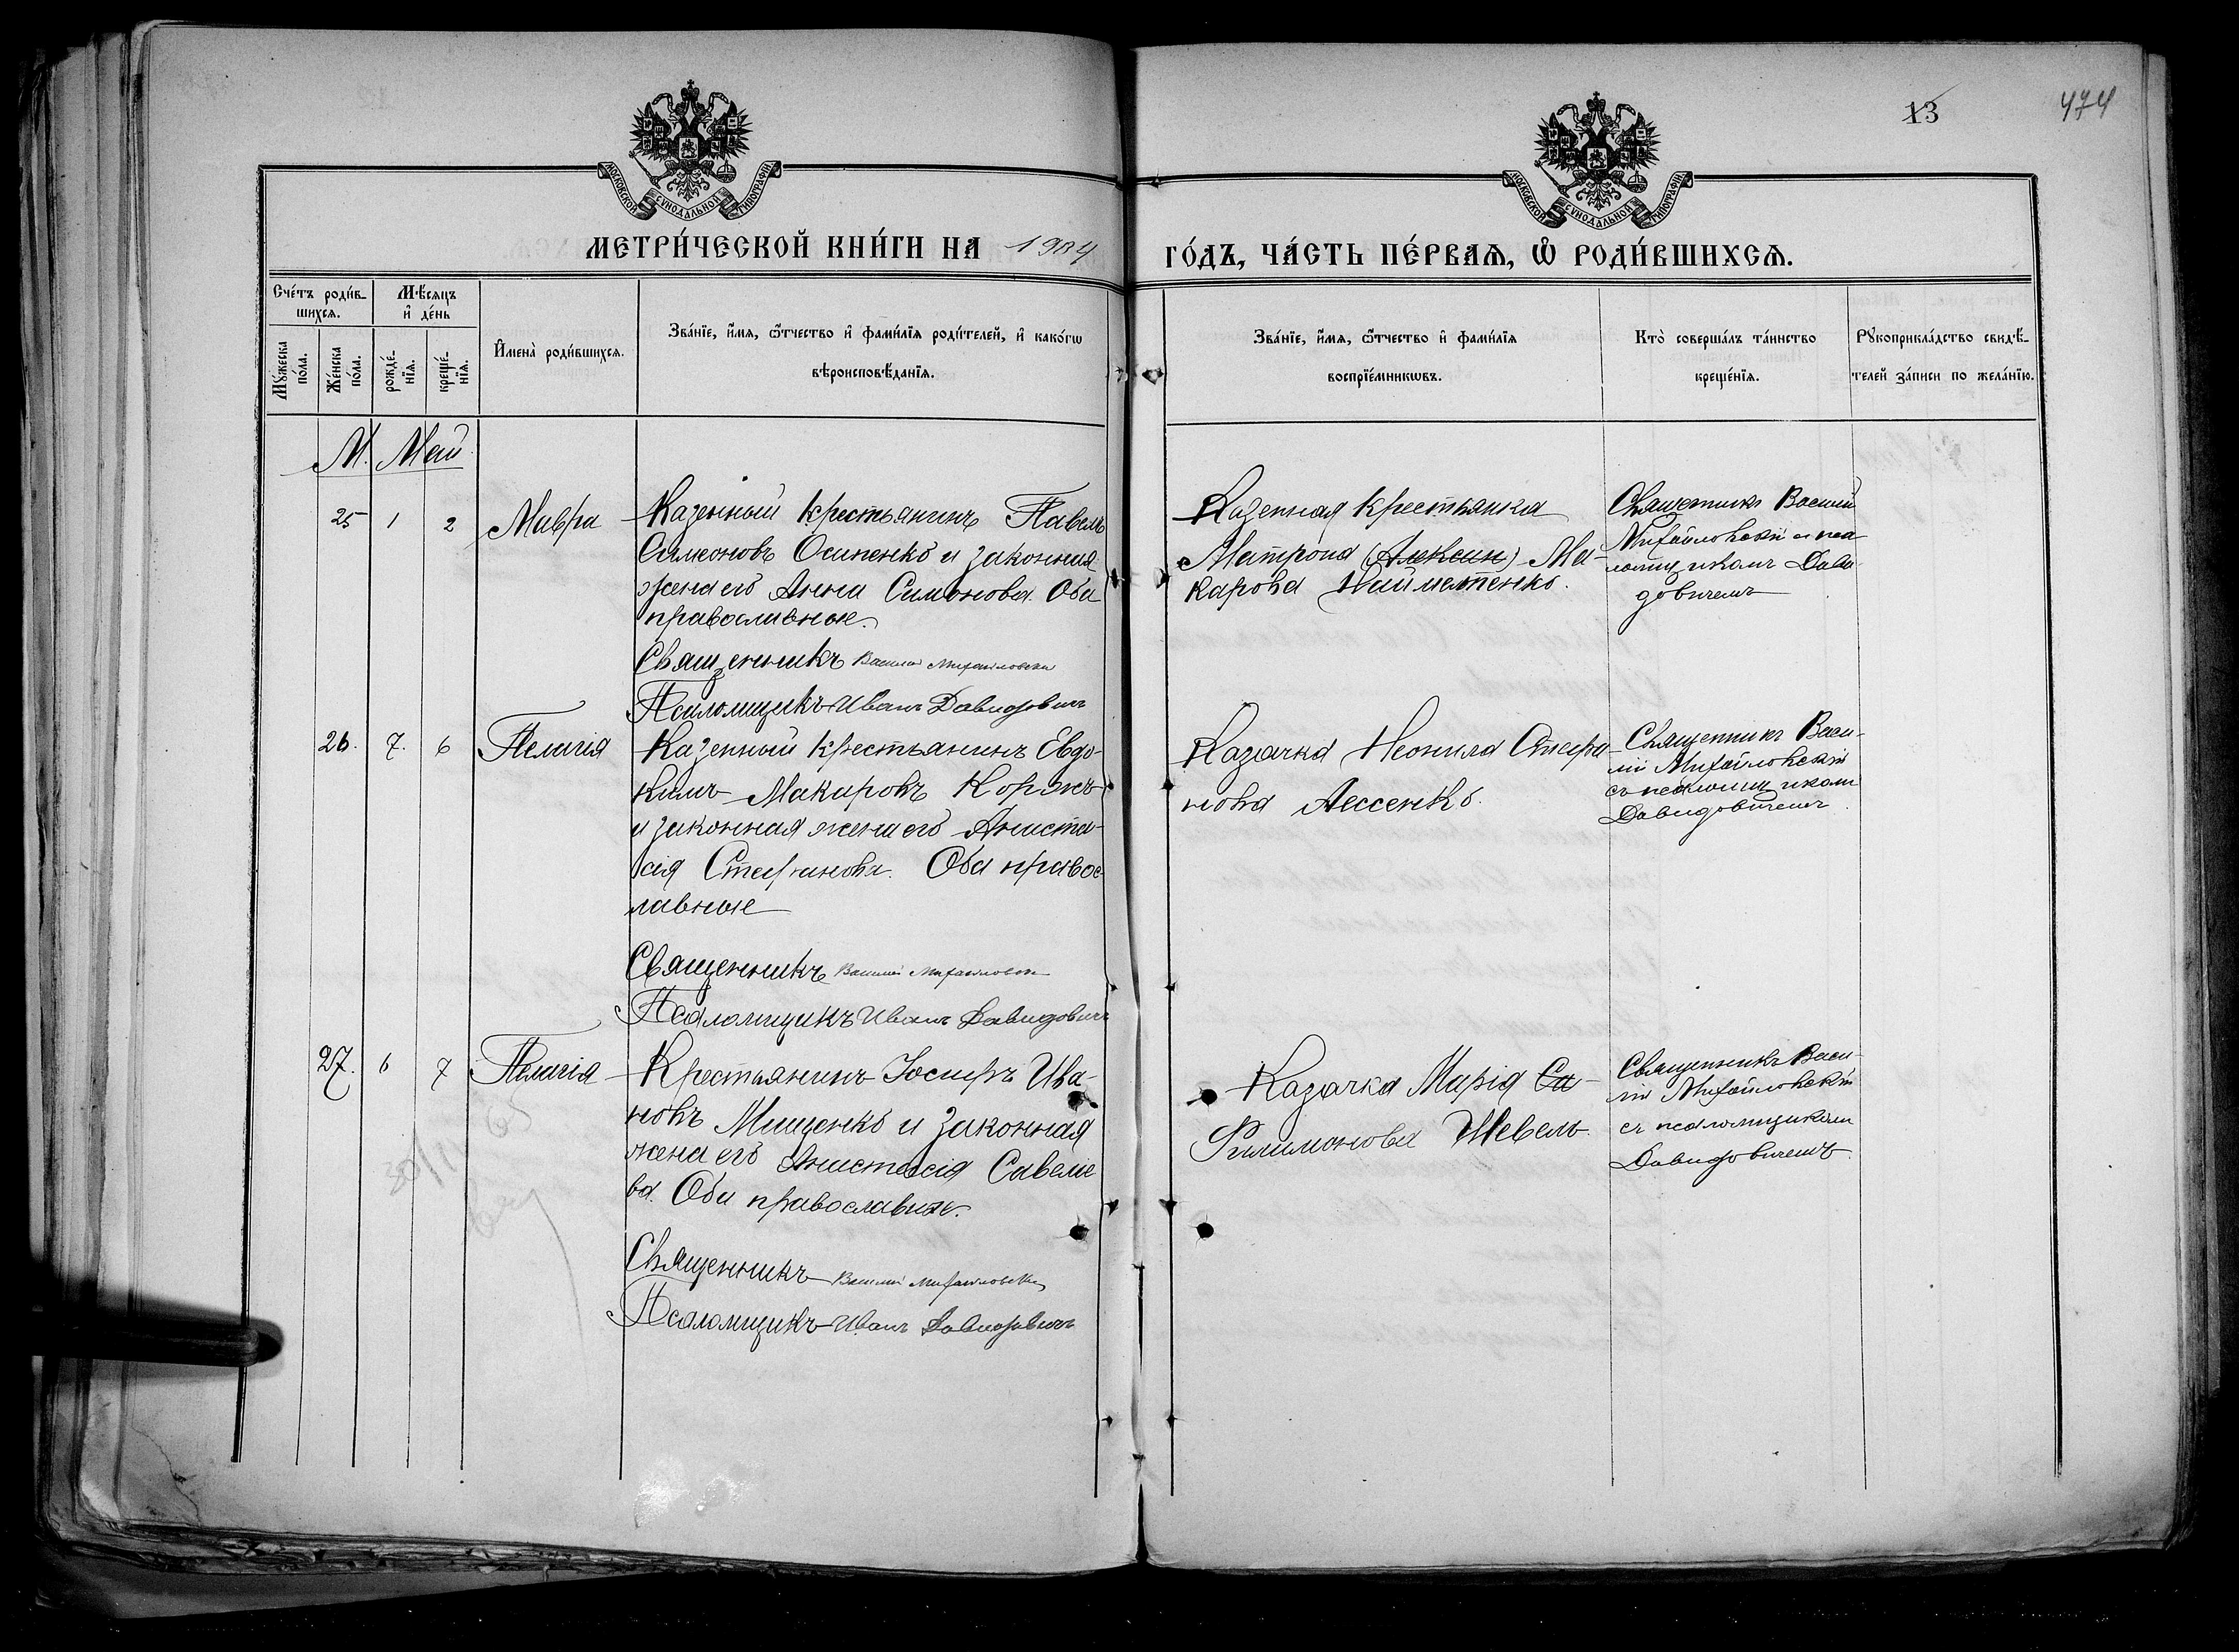 13
474
МОСКОВСКОЙ СУНОДАЛЬНОЙ ТИПОГРАФІИ
МОСКОВСКОЙ СУНОДАЛЬНОЙ ТИПОГРАФІИ
МЕТРИ́ЧЕСКОЙ КНИ́ГИ НА 1904
ГО́ДЪ, ЧА́СТЬ ПЕ́РВАѦ, Ѡ҆ РОДИ́ВШИХСѦ.
Сче́тъ роди́в-
шихсѧ.
Мѣ́сѧцъ
и҆ де́нь
Мꙋ́жеска
по́ла.
Же́нска
по́ла.
рожде́-
нїѧ.
креще́-
нїѧ.
И҆мена̀ роди́вшихсѧ.
Зва́нїе, и҆́мѧ, ѻ҆́тчество и҆ фами́лїѧ роди́телей, и҆ како́гѡ
вѣроисповѣ́данїѧ.
Зва́нїе, и҆́мѧ, ѻ҆́тчество и҆ фами́лїѧ
воспрїе́мникѡвъ.
Кто̀ соверша́лъ та́инство
креще́нїѧ.
Рꙋкоприкла́дство свидѣ́-
телей за́писи по жела́нїю.
М. Май
25 1 2 Мавра
Казенный крестьянинъ Павелъ
Симеоновъ Осипенко и законная
жена его Анна Симонова. Оба
православные.
Священникъ Василий Михайловский
Псаломщикъ Иванъ Давидовичъ
Казенная крестьянка
Матрона (Алексин) Ма-
карова Найметенко.
Священникъ Василій
Михайловскій и пса
ломщикомъ Дави-
довичемъ
26. 7. 6 Пелагія
Казенный крестьянинъ Евдо-
кимъ Макаровъ Коржъ
и законная жена его Анаста-
сія Стефанова. Оба правос-
лавные
Священникъ Василий Михайловский
Псаломщикъ Иванъ Давидовичъ
Казачка Неонила
нова Лессенко.
Священникъ Васи-
лій Михайловскій
съ псаломщикомъ
Давидовичемъ
27. 6 7 Пелагія
Крестьянинъ Іосифъ Ива-
новъ Мищенко и законная
жена его Анастасія Савеліе
ва. Оба православные.
Священникъ Василий Михайловский
Псаломщикъ Иванъ Давидовичъ
Казачка Марія Са-
Филимонова Шевель.
Священникъ Васи-
лій Михайловскій
съ псаломщикомъ
Давидовичемъ